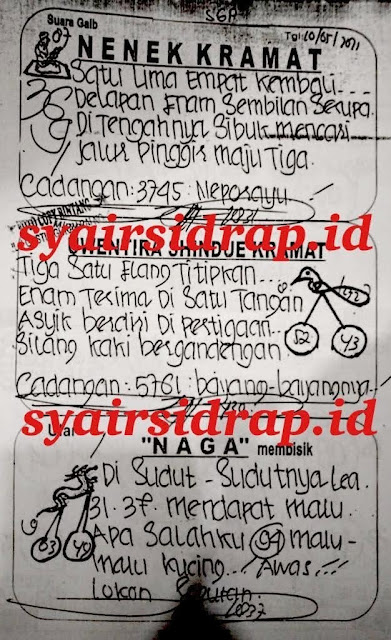 SGP
Suara Gaib
Tgl 20/05/2021
07
NENEK KRAMAT
Satu Lima Empat Kembali...
Delapan Enam Sembilan Serupa.
Di Tengahnya Sibuk mencari
Jalur Pinggir maju Tiga.
Cadangan: 3745:
syairsidrap.id
KRAMAT
Tiga Satu Elang Titipkan...
Enam Terima Di Satu Tangan
Asyik berdiri Di Pertigaan..
Silang kaki bergandengan
52 43
Cadangan: 5761: bayang-bayangnya..
syairsidrap.id
"NAGA" membisik
Di Sudut-Sudutnya Lea.
31.37. mendapat malu.
Apa Salahku 94 malu-
malu kucing... Awas...
03 49
Lokan